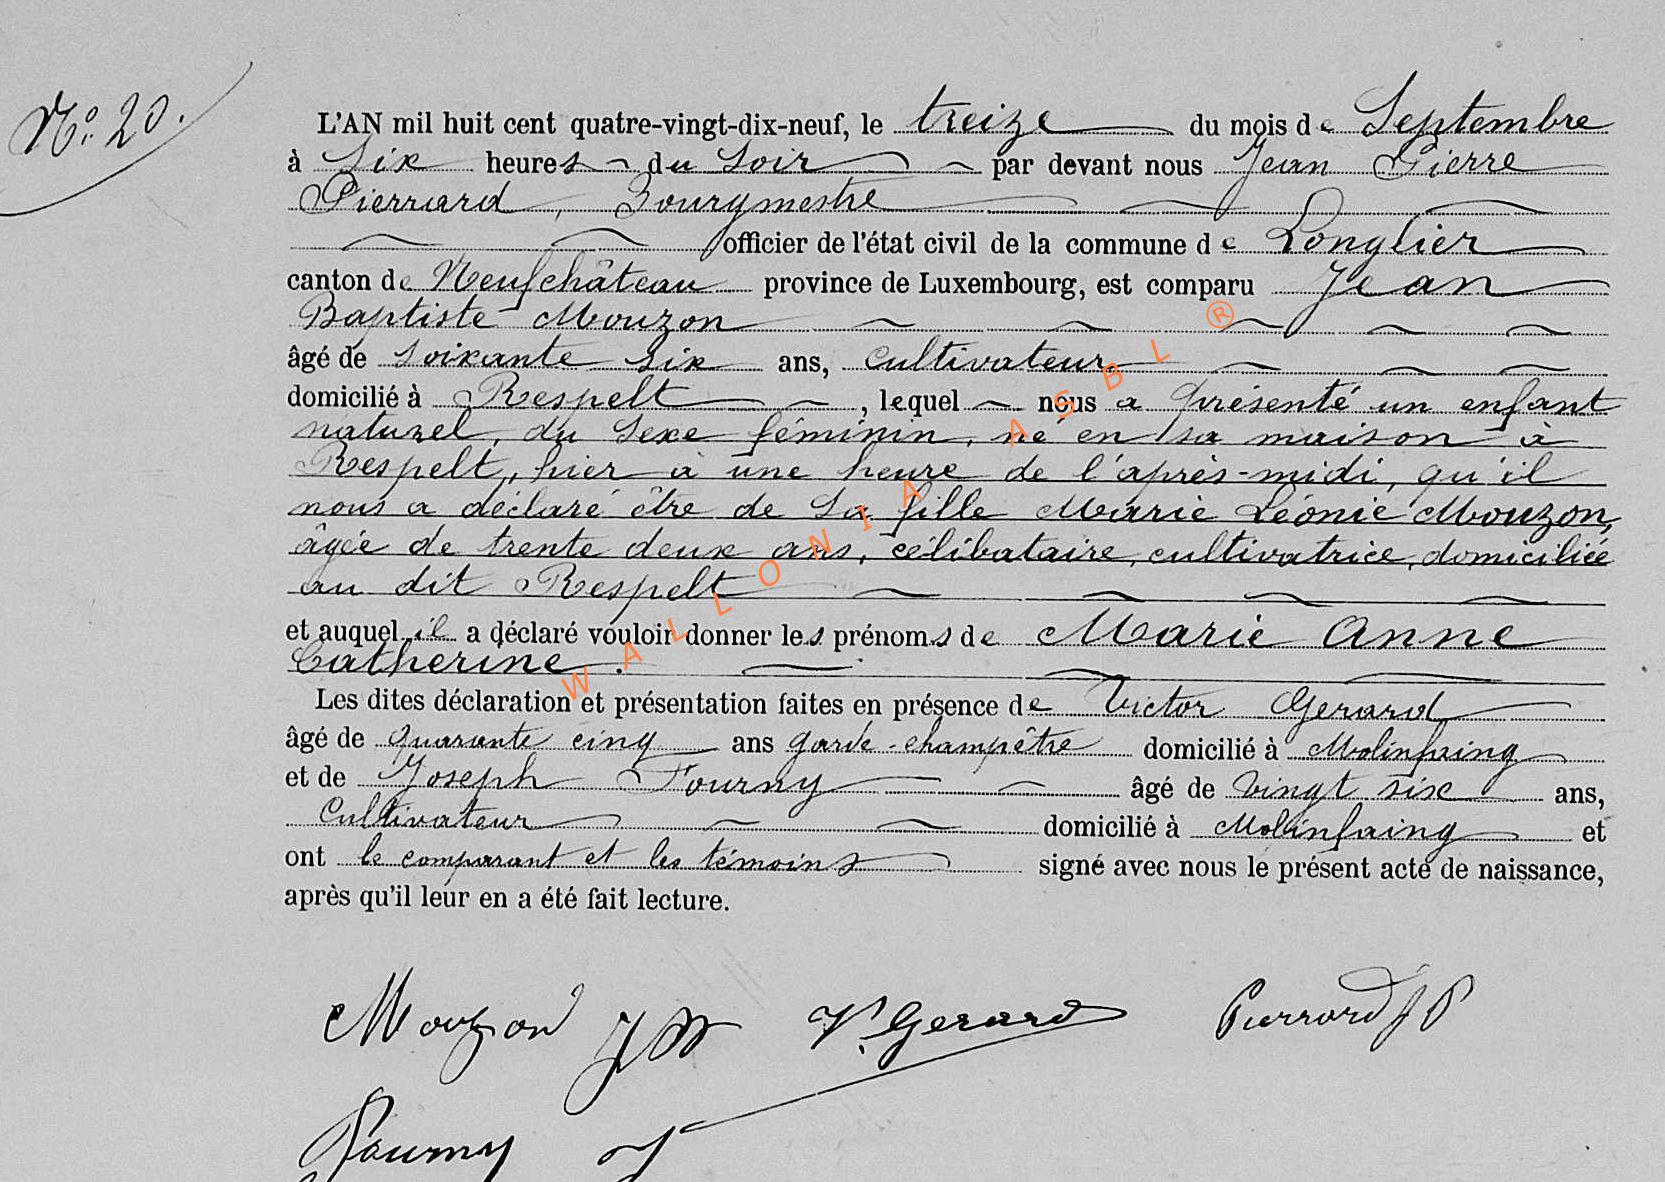 No. 20.
L'AN mil huit cent quatre-vingt-dix-neuf, le treize du mois de Septembre
à Six heures du Soir par devant nous Jean Pierre
Pierrard, Bourgmestre
officier de l'état civil de la commune de Longlier
canton de Neufchâteau province de Luxembourg, est comparu Jean
Baptiste Mouzon
âgé de soixante six ans, cultivateur
domicilié à Respelt, lequel nous a présenté un enfant
naturel, du sexe féminin, né en sa maison à
Respelt, hier à une heure de l'après-midi, qu'il
nous a déclaré être de sa fille Marie Léonie Mouzon,
âgée de trente deux ans, célibataire, cultivatrice, domiciliée
au dit Respelt
et auquel il a déclaré vouloir donner les prénoms de Marie Anne
Catherine.
Les dites déclaration et présentation faites en présence de Victor Gerard
âgé de quarante cinq ans garde-champêtre domicilié à Molinfaing
et de Joseph Fourny âgé de vingt six ans,
Cultivateur domicilié à Molinfaing et
ont le comparant et les témoins signé avec nous le présent acte de naissance,
après qu'il leur en a été fait lecture.
Mouzon JB V. Gerard Pierrard JP
Fourny J
WALLONIA ASBL ®